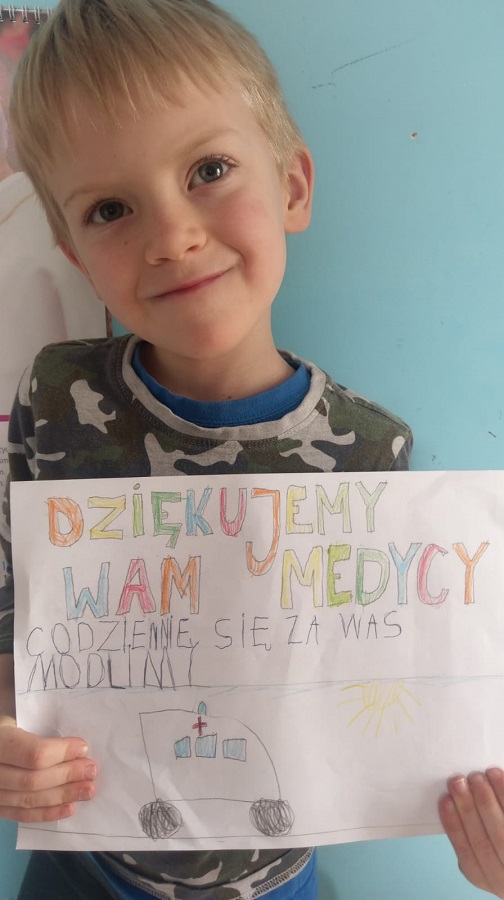 DZIĘKUJEMY
WAM MEDYCY
CODZIENNIE SIĘ ZA WAS
MODLIMY